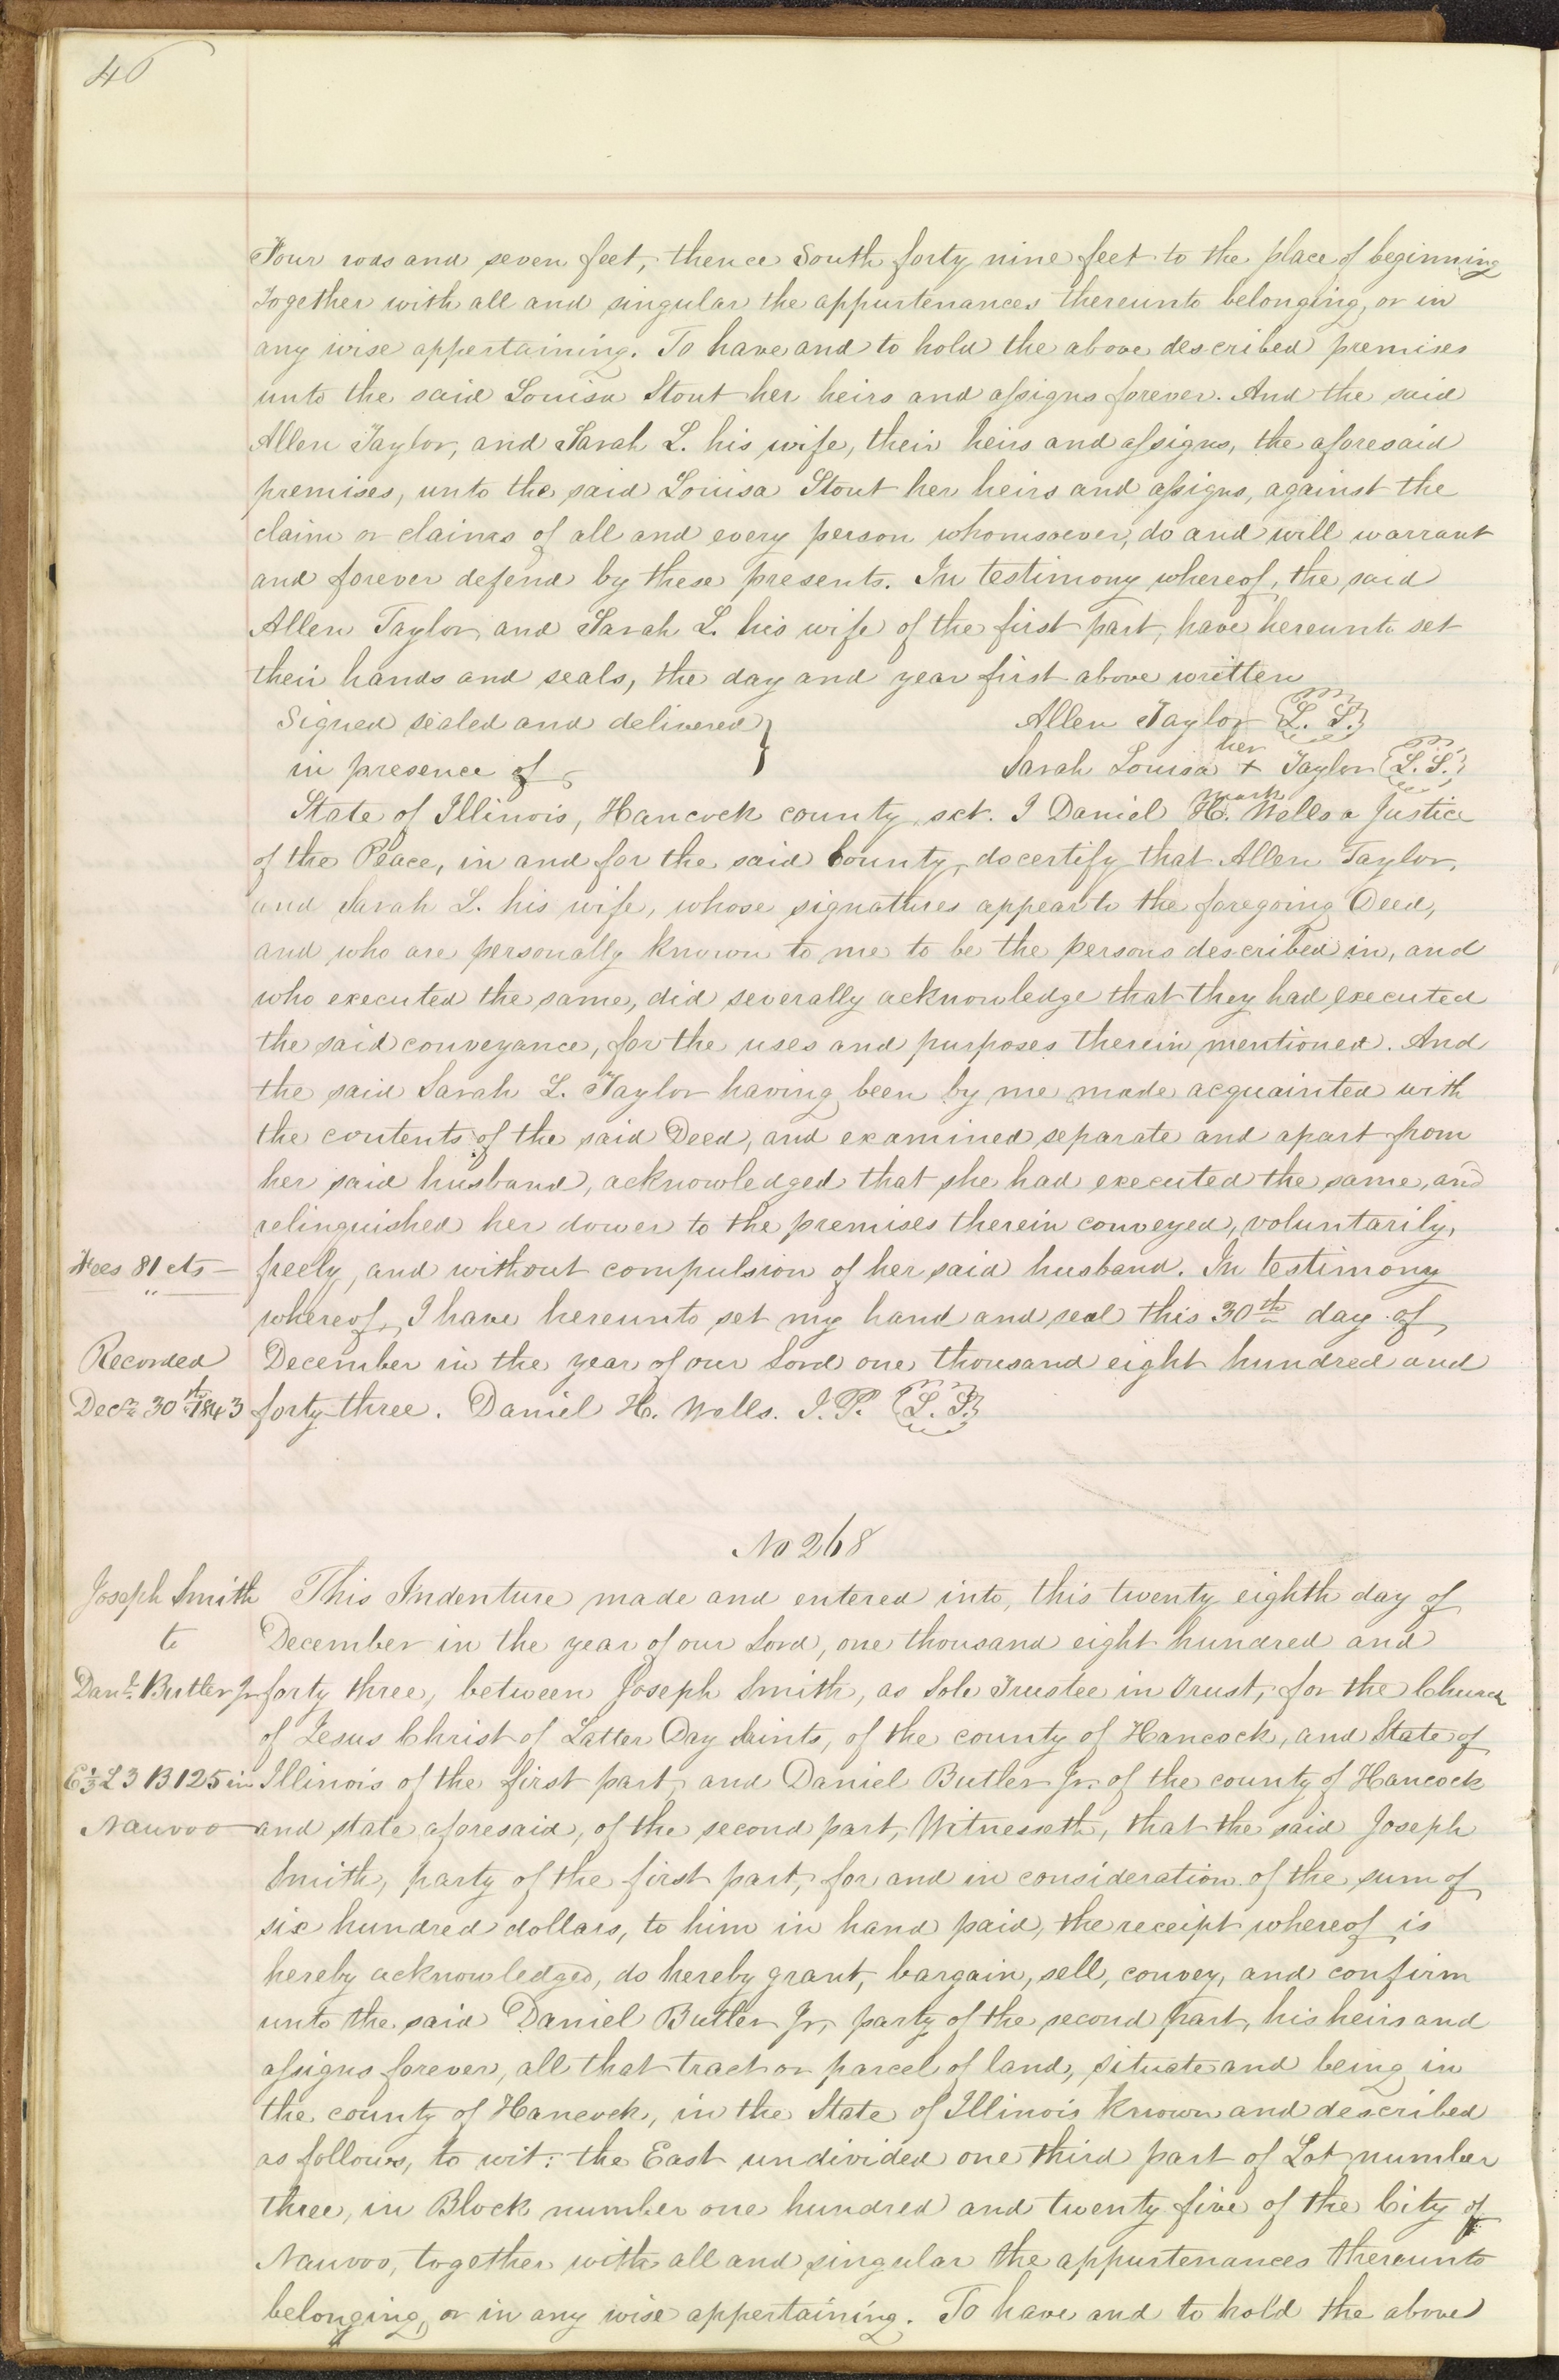 46
Four rods and seven feet, thence South forty nine feet to the place of beginning
Together with all and singular the appurtenances thereunto belonging, or in
any wise appertaining. To have and to hold the above described premises
unto the said Louisa Stout her heirs and assigns forever. And the said
Allen Taylor, and Sarah L. his wife, their heirs and assigns, the aforesaid
premises, unto the said Louisa Stout her heirs and assigns, against the
claim or claims of all and every person whomsoever, do and will warrant
and forever defend by these presents. In testimony whereof, the said
Allen Taylor, and Sarah L. his wife of the first part, have hereunto set
their hands and seals, the day and year first above written
Signed sealed and delivered } Allen Taylor {L. S.}
in presence of Sarah Louisa her + mark Taylor {L. S.}
State of Illinois, Hancock county sct. I Daniel H. Wells a Justice
of the Peace, in and for the said County, do certify that Allen Taylor,
and Sarah L. his wife, whose signatures appear to the foregoing Deed,
and who are personally known to me to be the persons described in, and
who executed the same, did severally acknowledge that they had executed
the said conveyance, for the uses and purposes therein mentioned. And
the said Sarah L. Taylor having been by me made acquainted with
the contents of the said Deed, and examined separate and apart from
her said husband, acknowledged that she had executed the same, and
relinquished her dower to the premises therein conveyed, voluntarily,
Fees 81 cts freely, and without compulsion of her said husband. In testimony
whereof, I have hereunto set my hand and seal this 30th day of
Recorded December in the year of our Lord one thousand eight hundred and
Decr. 30th 1843 forty three. Daniel H. Wells. J. P. {L. S.}
No 268
Joseph Smith This Indenture made and entered into, this twenty eighth day of
to December in the year of our Lord, one thousand eight hundred and
Danl. Butler Jr forty three, between Joseph Smith, as Sole Trustee in Trust, for the Church
of Jesus Christ of Latter Day Saints, of the county of Hancock, and State of
E 1/3 L 3 B 125 in Illinois of the first part, and Daniel Butler Jr. of the county of Hancock
Nauvoo and state aforesaid, of the second part, Witnesseth, that the said Joseph
Smith, party of the first part, for and in consideration of the sum of
six hundred dollars, to him in hand paid, the receipt whereof is
hereby acknowledged, do hereby grant, bargain, sell, convey, and confirm
unto the said Daniel Butler Jr, party of the second part, his heirs and
assigns forever, all that tract or parcel of land, situate and being in
the county of Hancock, in the State of Illinois known and described
as follows, to wit: the East undivided one third part of Lot number
three, in Block number one hundred and twenty five of the City of
Nauvoo, together with all and singular the appurtenances thereunto
belonging, or in any wise appertaining. To have and to hold the above